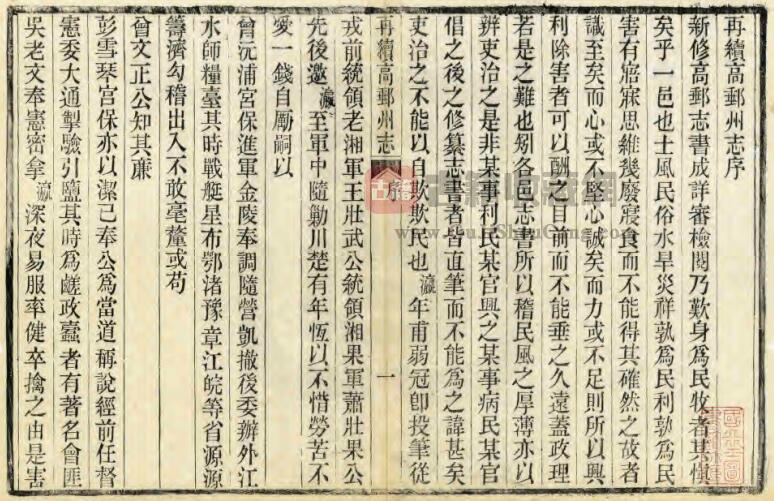 再續高郵州志序
新修高郵志書成詳審檢閱乃歎身為民牧者其慎
矣乎一邑也士風民俗水旱災祥孰為民利孰為民
害有寤寐思維幾廢寢食而不能得其確然之故者
識至矣而心或不堅心誠矣而力或不足則所以興
利除害者可以酬之目前而不能垂之久遠蓋政理
若是之難也矧各邑志書所以稽民風之厚薄亦以
辨吏治之是非某事利民某官興之某事病民某官
倡之後之修纂志書者皆直筆而不能為之諱甚矣
吏治之不能以自欺欺民也瀛年甫弱冠卽投筆從
再續高郵州志 序 一
戎前統領老湘軍王壯武公統領湘果軍蕭壯果公
先後邀瀛至軍中隨勦川楚有年恆以不惜勞苦不
愛一錢自勵嗣以
曾沅浦宮保進軍金陵奉調隨營凱撤後委辦外江
水師糧臺其時戰艇星布鄂渚豫章江皖等省源源
籌濟勾稽出入不敢毫釐或苟
曾文正公知其廉
彭雪琴宮保亦以潔己奉公為當道稱說經前任督
憲委大通掣驗引鹽其時為鹺政蠹者有著名會匪
吳老文奉憲密拿瀛深夜易服率健卒擒之由是害